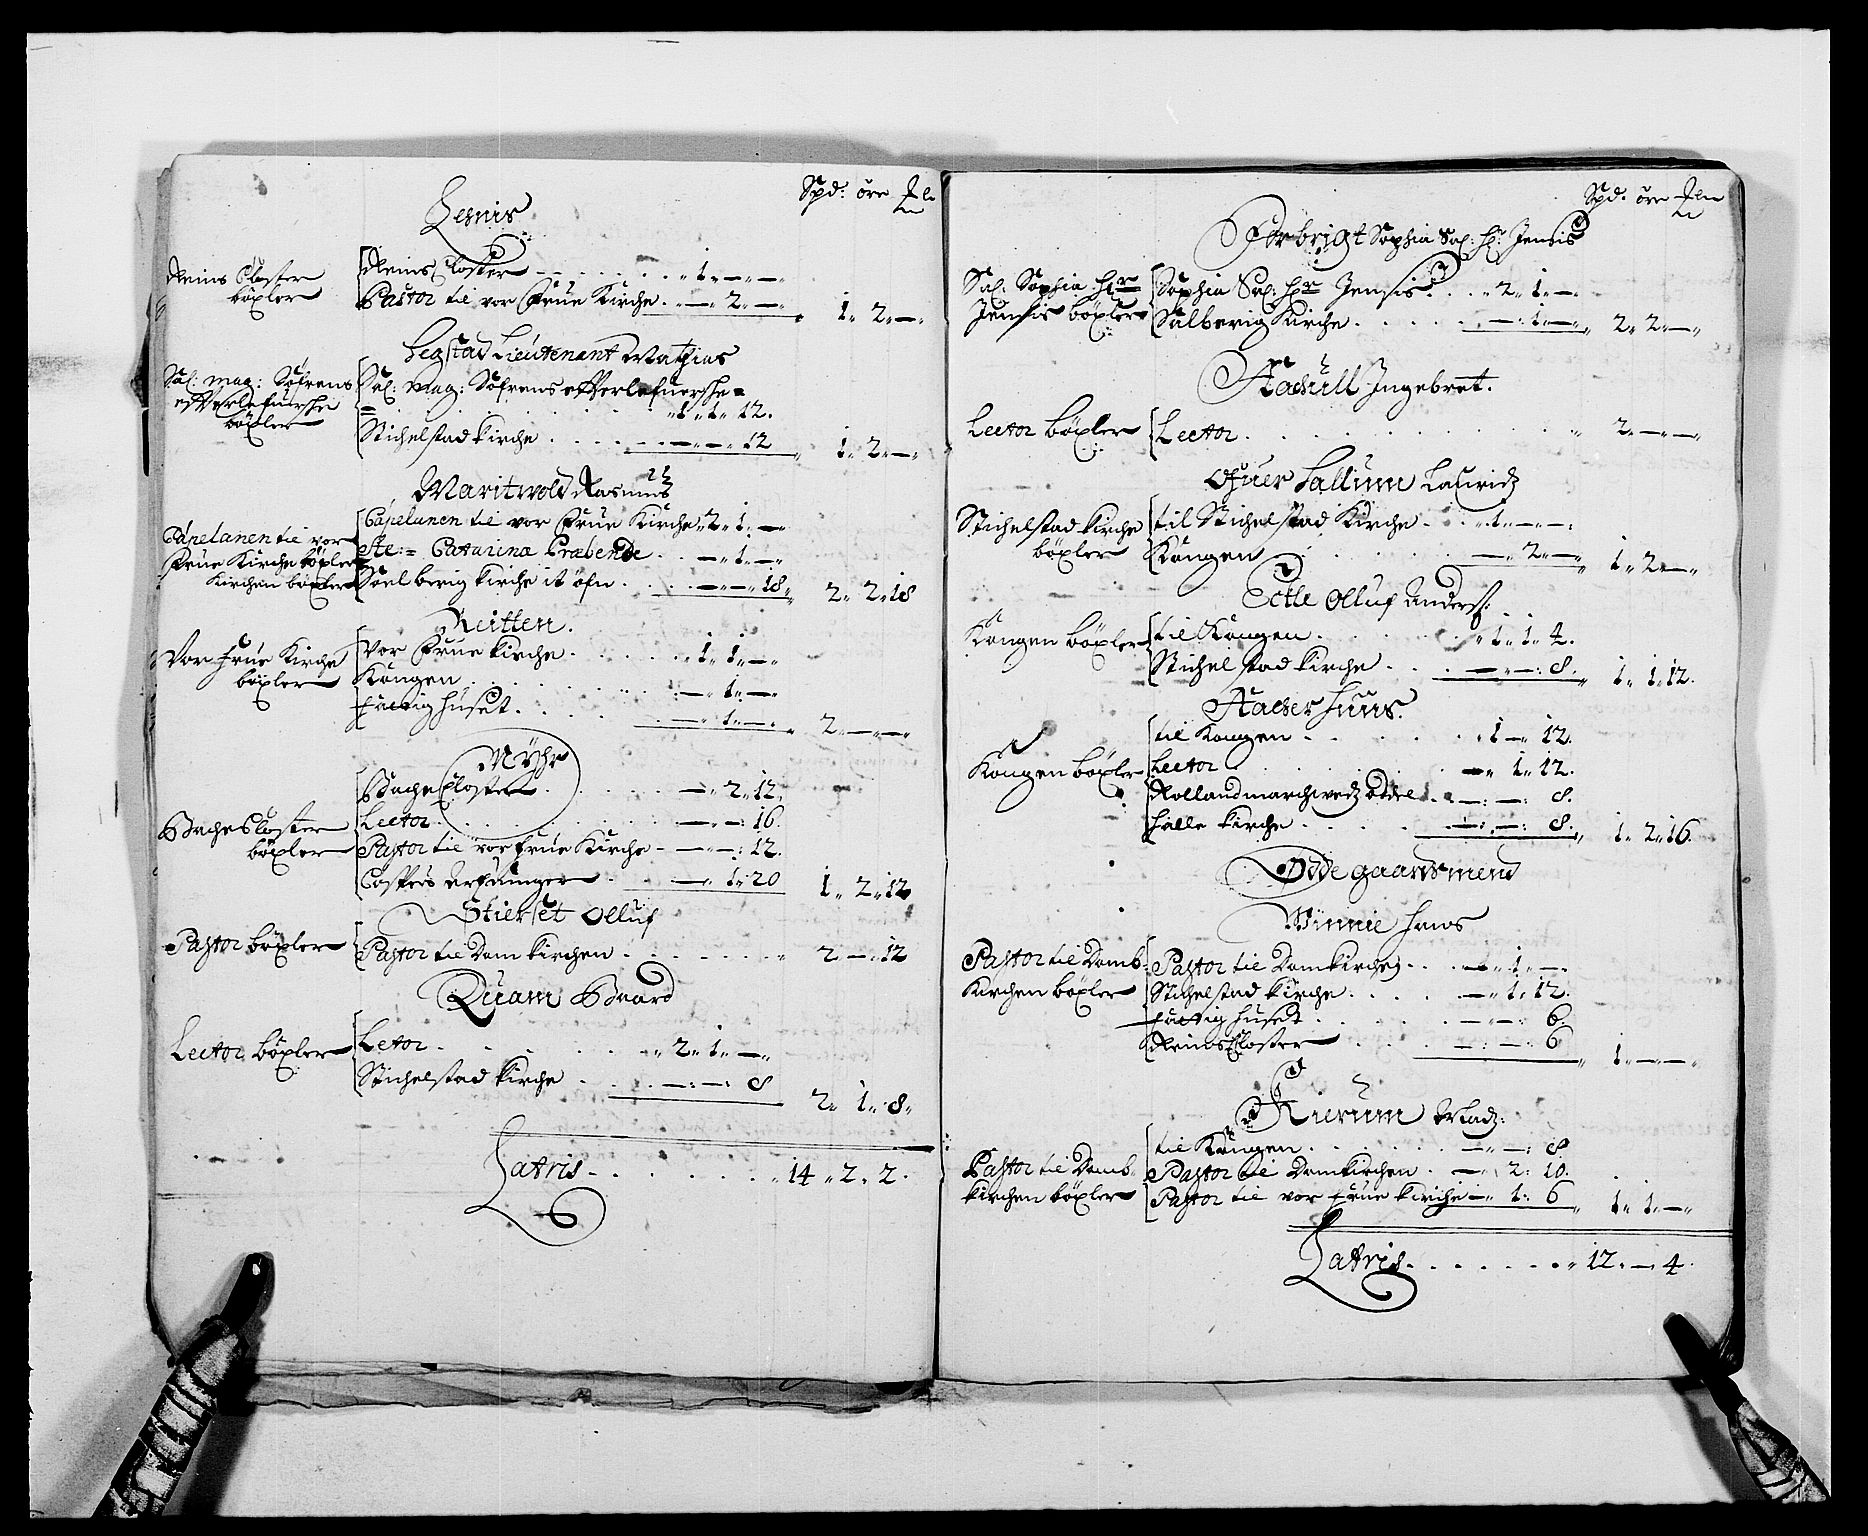 Spd: öre
Lesnis
Reins Closter
böxler
Reins Closter - . . . . . „ 1„ — „ —
Pastor til vor Frue Kirche . „ — „ 2„ — „
1„ 2„ —
Legstad Lieutenant Matzias
Sal: Mag: Söfrens
efterlefuersche
böxler
Sal: Mag: Söfrens efterlefuersche =
= . . . . . „ 1„ 1„ 12.
Stichelstad Kirche . . . . — „ — „ 12
1„ 2„ —
Maritwold Rasmus
Capelanen til vor
Frue Kirche böxler
Kirchen böxler
Capelanen til vor Frue Kirche „ 2„ 1„ —
Ste: = Catarina Præbende . . — „ 1„ —
Soelberig Kirche it öfn . . . — „ — „ 18„
2„ 2„ 18
Reitten.
Vor Frue Kirche
böxler
Vor Frue Kirche . . . . . „ 1„ 1„ —
Kongen . . . . . . — „ 1„ —
fattighuset . . . . — „ 1„ —
2„ — „ —
Myhr
Bache Closter
böxler
Bache Closter . . . . . — „ 2„ 12.
Lector . . . . . . — „ — : 16.
Pastor til vor Frue Kirche - — „ — : 12.
Caspers Arfuinger . . — „ 1„ 20
1„ 2„ 12
Skierset Olluf
Pastor böxler
Pastor til Dom Kirchen . . . . . „ 2„ — „ 12
Quam Baard
Lector böxler
Letor . . . . . . „ 2„ 1„ —
Stichelstad Kirche . . . — : — : 8
2„ 1„ 8„
Latris - . . . . . . „ 14 „ 2„ 2.
Spd. öre
Forbrigt Sophia Sal: Hr: Jensis
Sal: Sophia Hr
Jensis böxler
Sophia Sal: Hr Jensis . . . „ 2„ 1„ —
Salberig Kirche . . . . . — „ 1„ —
2„ 2„ —
Hachull Ingebret.
Lector böxler
Lector . . . . . . . . „ 2„ — „ —
Ofuer Hallum Lauridz
Stichelstad Kirche
böxler
til Stichelstad Kirche . . „ 1„ — „ —
Kongen . . . . . — „ 2„ —
1„ 2„ —
Eckle Olluf Anders:
Kongen böxler
til Kongen . . . . . „ 1„ 1„ 4.
Stichelstad Kirche . . . — „ — : 8.
1„ 1„ 12.
Kongen böxler
til Kongen . . . . . „ 1„ — „ 12.
Lector . . . . . . — „ 1„ 12.
Kollandmarchwedz Oddel . . — : — : 8.
Halle Kirche . . . . . — : — : 8.
1„ 2„ 16.
Ödegaardsmend
Winnie Hans
Pastor til Domb=
Kirchen böxler
Pastor til Domkirchen . . . — „ 1„ —
Stichelstad Kirche . . . . — „ 1„ 12.
fattighuset . . . . . — „ — : 6.
Reins Closter . . . . . — : — : 6
1„ — „ —
Kierum Madz:
Pastor til Domb.
kirchen böxler
til Kongen . . . . . . — „ — : 8
Pastor til Domkirchen . — „ 2: 10.
Pastor til vor Frue Kirche — „ 1: 6
1„ 1„ —
Latris . . . . . . . „ 12„ — „ 4.